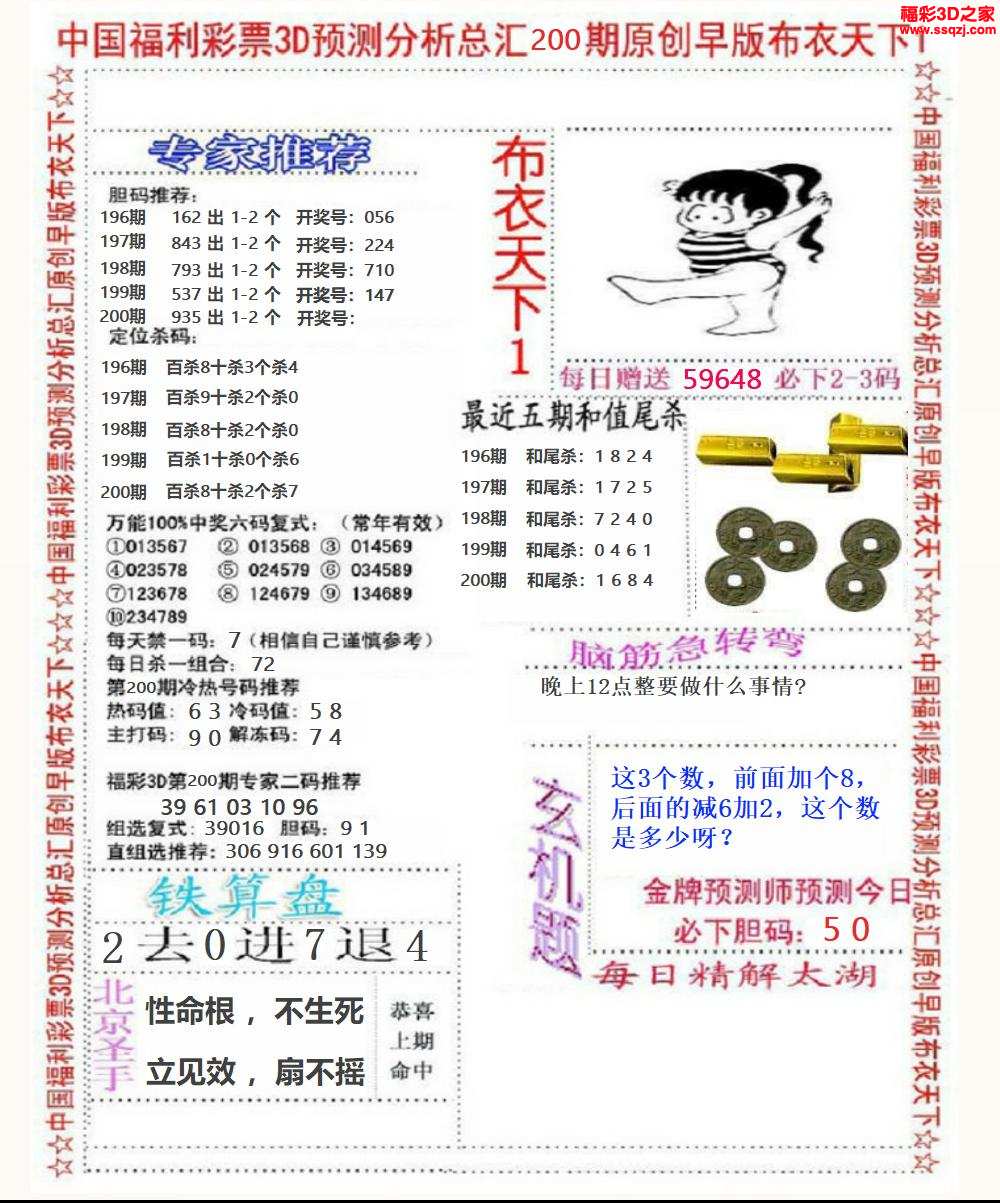 福彩3D之家
www.ssqzj.com
中国福利彩票3D预测分析总汇200期原创早版布衣天下1
☆☆中国福利彩票3D预测分析总汇原创早版布衣天下☆☆☆中国福利彩票3D预测分析总汇原创早版布衣天下☆☆
专家推荐
胆码推荐:
196期 162 出 1-2 个 开奖号: 056
197期 843 出 1-2 个 开奖号: 224
198期 793 出 1-2 个 开奖号: 710
199期 537 出 1-2 个 开奖号: 147
200期 935 出 1-2 个 开奖号:
定位杀码:
196期 百杀8十杀3个杀4
197期 百杀9十杀2个杀0
198期 百杀8十杀2个杀0
199期 百杀1十杀0个杀6
200期 百杀8十杀2个杀7
万能100%中奖六码复式: (常年有效)
①013567 ② 013568 ③ 014569
④023578 ⑤ 024579 ⑥ 034589
⑦123678 ⑧ 124679 ⑨ 134689
⑩234789
每天禁一码: 7(相信自己谨慎参考)
每日杀一组合: 72
第200期冷热号码推荐
热码值: 6 3 冷码值: 5 8
主打码: 9 0 解冻码: 7 4
福彩3D第200期专家二码推荐
39 61 03 10 96
组选复式: 39016 胆码: 9 1
直组选推荐: 306 916 601 139
铁算盘
2去0进7退4
北京圣手
性命根，不生死
立见效，扇不摇
恭喜
上期
命中
布衣天下1
每日赠送 59648 必下2-3码
最近五期和值尾杀
196期 和尾杀: 1 8 2 4
197期 和尾杀: 1 7 2 5
198期 和尾杀: 7 2 4 0
199期 和尾杀: 0 4 6 1
200期 和尾杀: 1 6 8 4
脑筋急转弯
晚上12点整要做什么事情?
玄机题
这3个数，前面加个8，
后面的减6加2，这个数
是多少呀?
金牌预测师预测今日
必下胆码: 5 0
每日精解太湖
☆☆中国福利彩票3D预测分析总汇原创早版布衣天下☆☆☆中国福利彩票3D预测分析总汇原创早版布衣天下☆☆